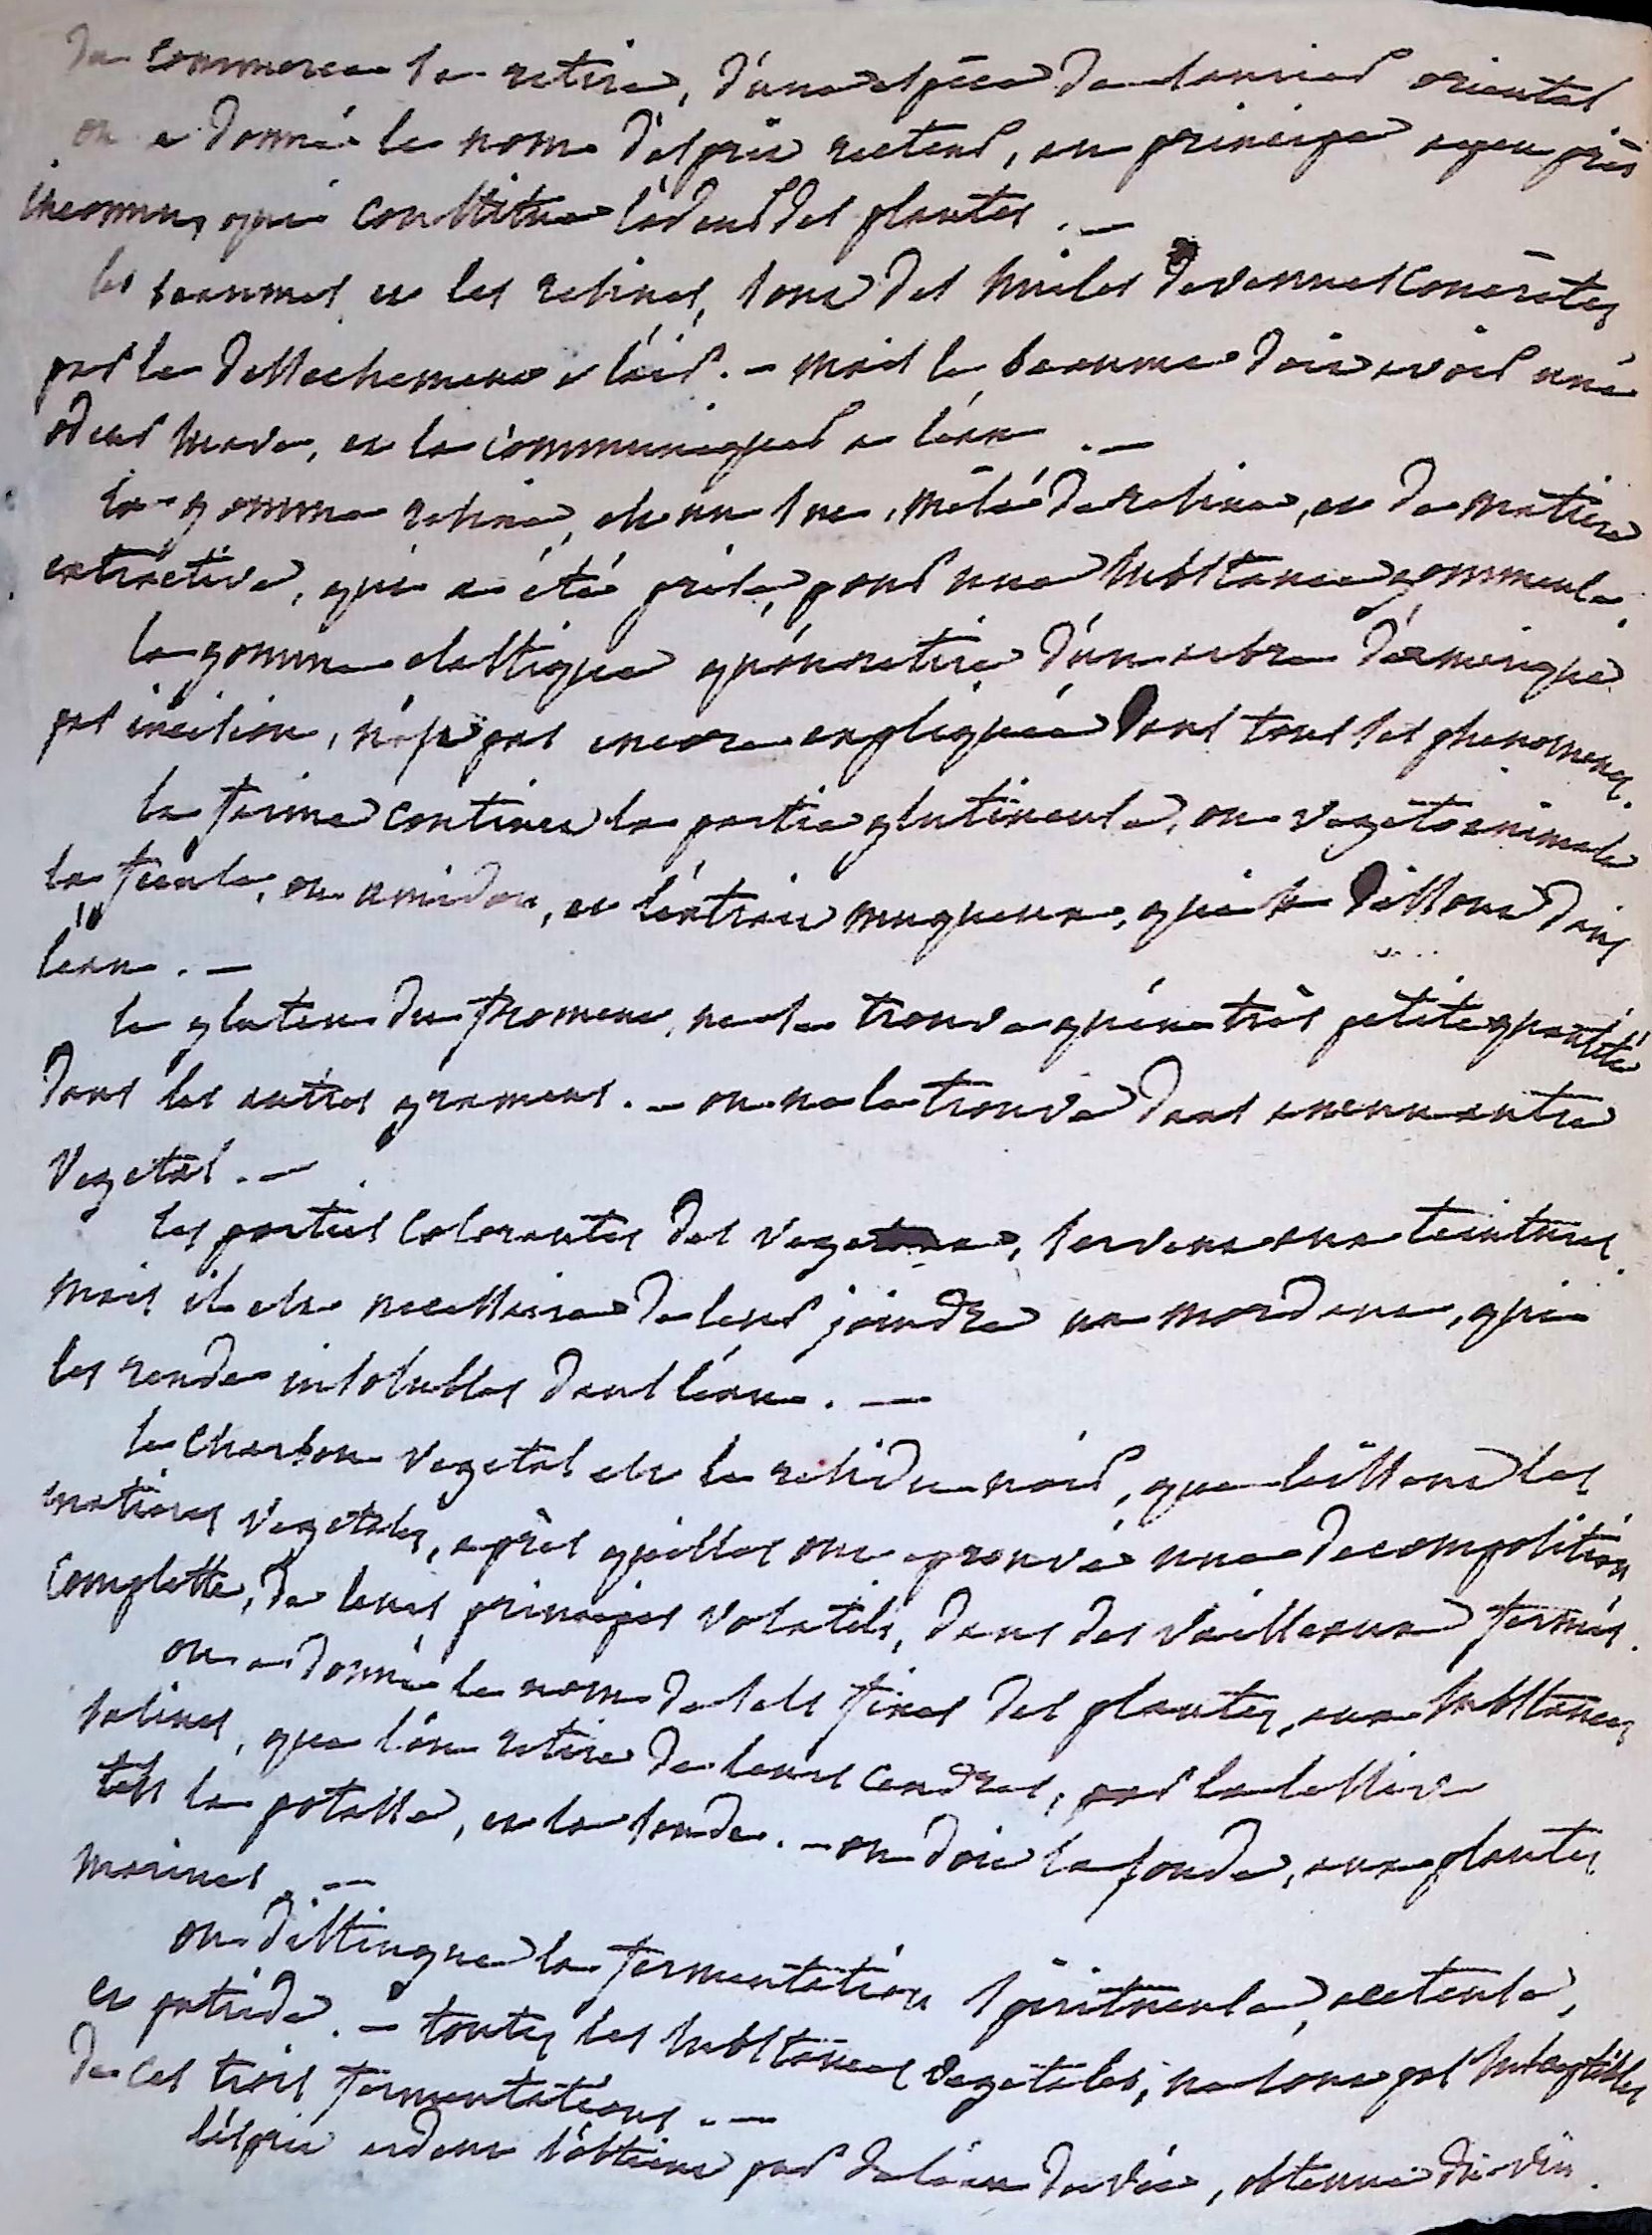 du commerce se retire, d'une espèce de laurier oriental
on a donné le nom d'esprit recteur, au principe a peu près
inconnu, qui constitue l'odeur des plantes . —
les beaumes et les resines, sont des huiles devenues concretes
par le dessechement a l'air. — mais le beaume doit avoir une
odeur suave, et la communiquer a l'eau . —
la gomme resine, est un suc, mêlé de resine, et de matiere
extractive, qui a été prise, pour une substance gommeuse.
la gomme elastique qu'on retire d'un arbre d'amerique
par incision, n'est pas encore expliquée dans tous ses phenomenes.
la farine contient la partie glutineuse, ou vegeto animale
la fecule, ou amidon, et l'extrait muqueux, qui se dissout dans
l'eau . —
le gluten du froment, ne se trouve qu'en très petite quantité
dans les autres gramens. — on ne le trouve dans aucun autre
vegetal . —
les parties colorantes des vegetaux, servent aux teintures.
mais il est necessaire de leur joindre un mordant, qui
les rende insolubles dans l'eau . —
le charbon vegetal est le residu noir, que laissent les
matieres vegetales, après qu'elles ont eprouvé une decomposition
complette, de leurs principes volatils, dans des vaisseaux fermés.
on a donné le nom de sels fixes des plantes, aux substances
salines, que l'on retire de leurs cendres, par la lessive
tels la potasse, et la soude. — on doit la soude, aux plantes
marines . —
on distingue la fermentation spiritueuse, aceteuse,
et putride. — toutes les substances vegetales, ne sont pas susceptibles
de ces trois fermentations . —
l'esprit ardent s'obtient par de l'eau de vie, obtenue du vin.